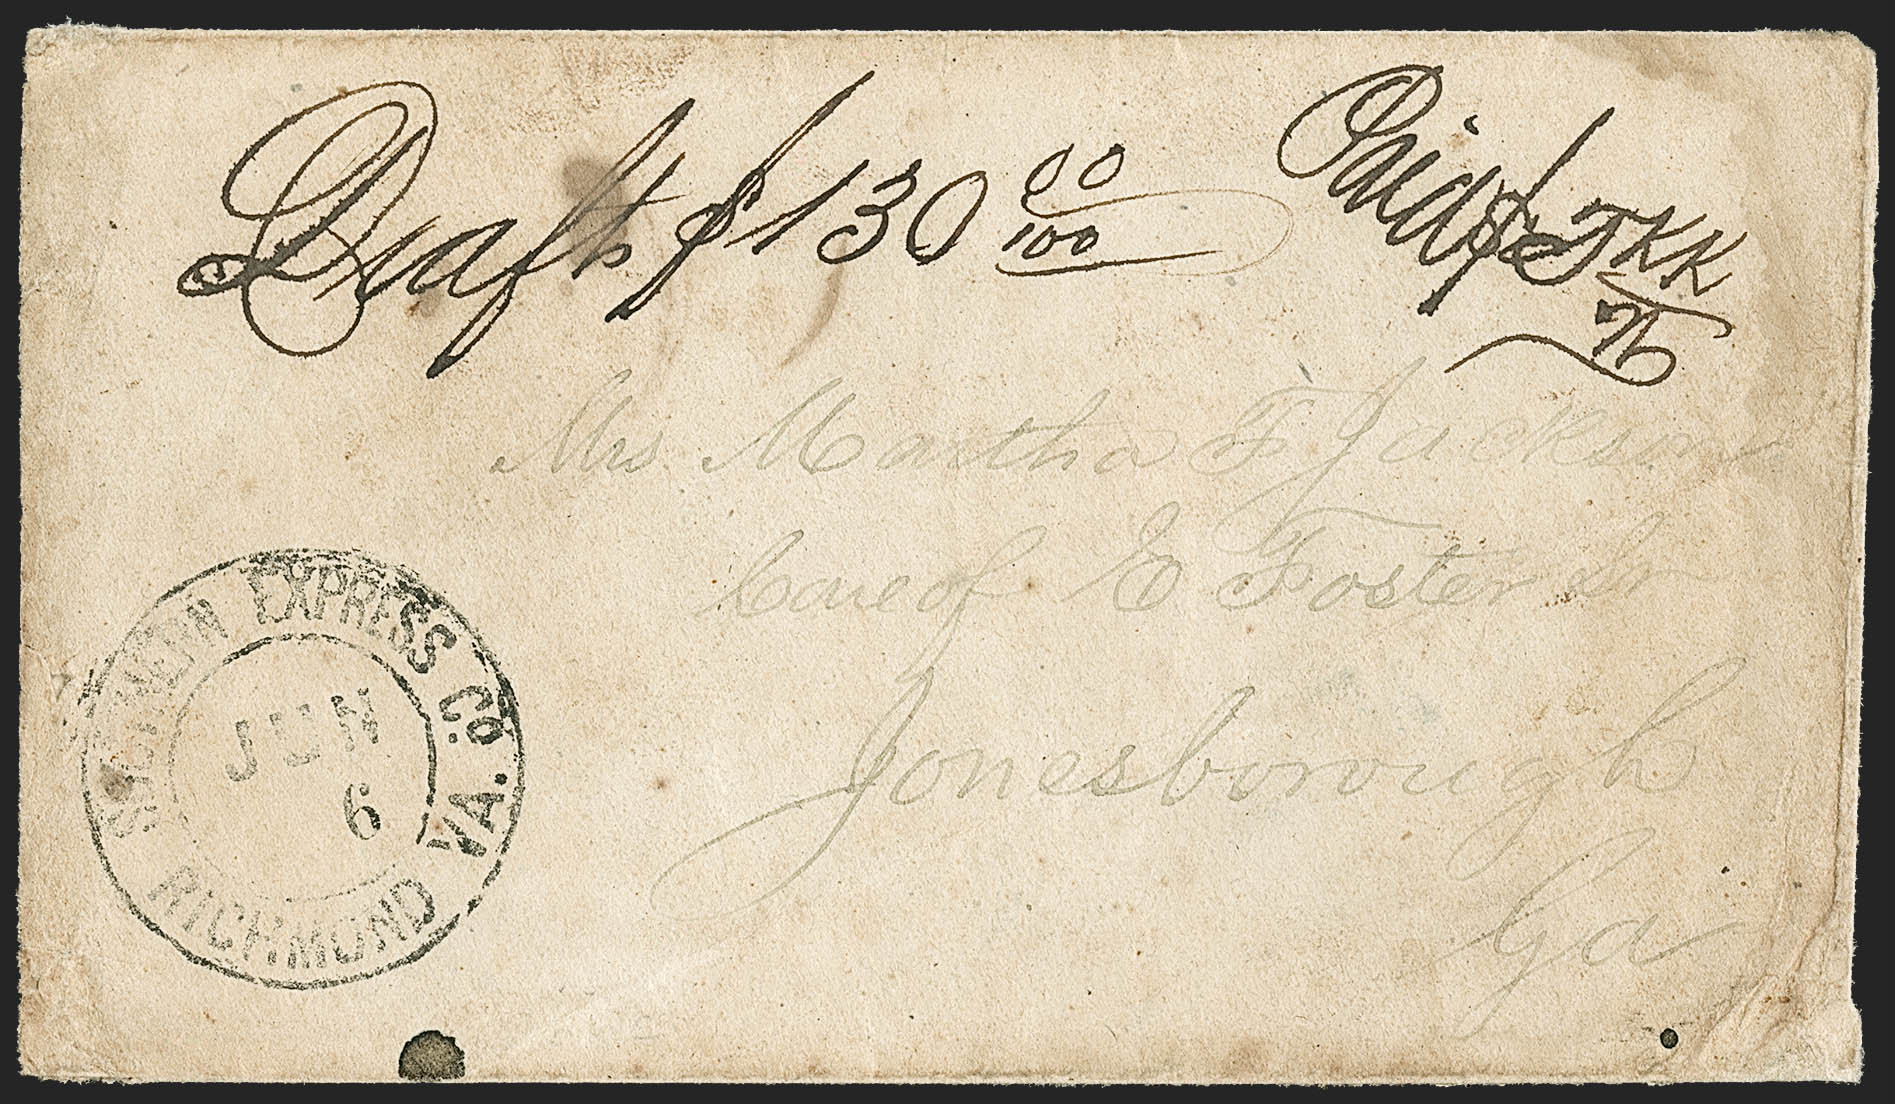 Draft $130 00/100
Paid $2
Mrs Martha F Jackson
Care of E Foster Sr
Jonesborough
Ga
SOUTHERN EXPRESS CO. VA.
JUN
6
RICHMOND